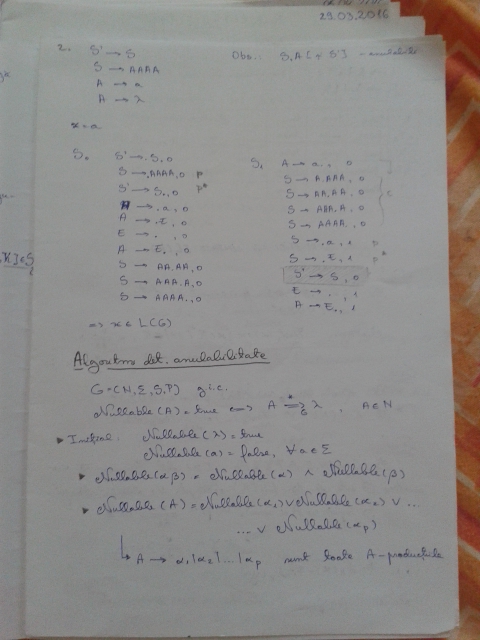 29.03.2016
2. S' → S Obs.: S, A [+ S'] - anulabile
S → AAAA
A → a
A → λ
x = a
S₀ S' → .S, 0
S → .AAAA, 0 p
S' → S., 0 p*
A → .a, 0
A → .E, 0
E → ., 0
A → E., 0
S → A.AAA, 0
S → AA.AA, 0
S → AAA.A, 0
S → AAAA., 0
S₁ A → a., 0
S → A.AAA, 0
S → AA.AA, 0 c
S → AAA.A, 0
S → AAAA., 0
S → .a, 1 p
S → .E, 1 p*
S' → S., 0
E → ., 1
A → E., 1
=> x ∈ L(G)
Algoritm det. anulabilitate
G = (N, Σ, S, P) g.i.c.
Nullable(A) = true <=> A *=>G λ, A ∈ N
▸ Initial: Nullable(λ) = true
Nullable(a) = false, ∀ a ∈ Σ
▸ Nullable(αβ) = Nullable(α) ∧ Nullable(β)
▸ Nullable(A) = Nullable(α₁) ∨ Nullable(α₂) ∨ ...
... ∨ Nullable(αp)
↳ A → α₁|α₂|...|αp sunt toate A-productiile